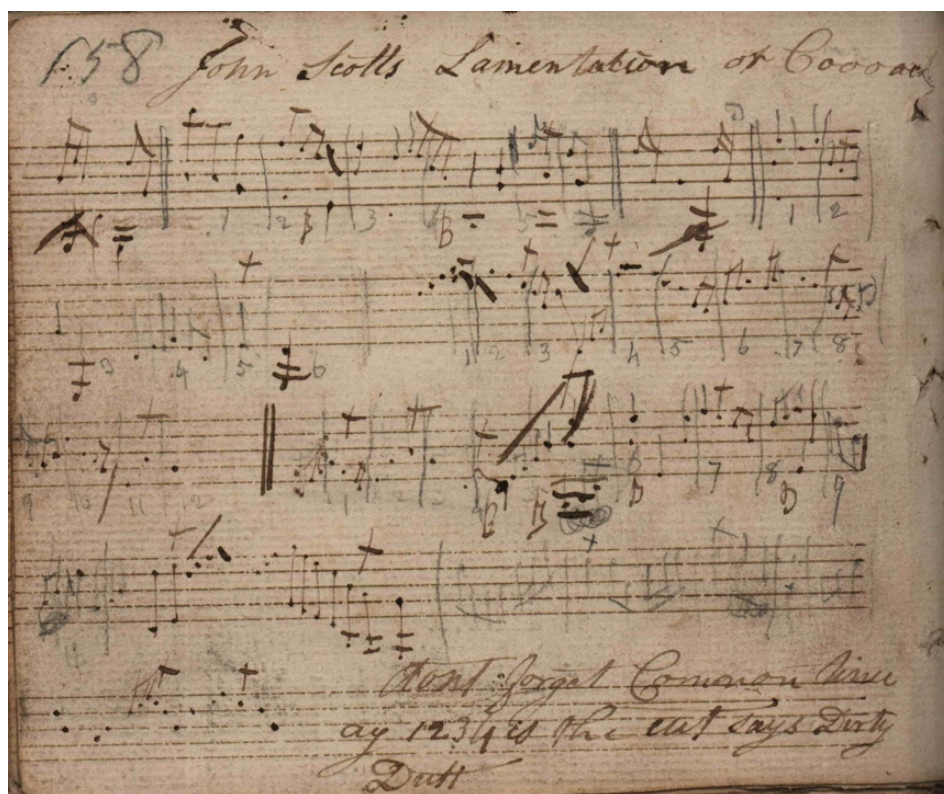 158 John Scotts Lamentation or
1 2 B 3 B 5 1 2
3 4 5 6 1 2 3 4 5 6 7 8
9 10 11 12 1 2 B B 6 B 7 8 B 9
4
dont forget Common time
ay 1234 is the cut says Dirty
Dutt